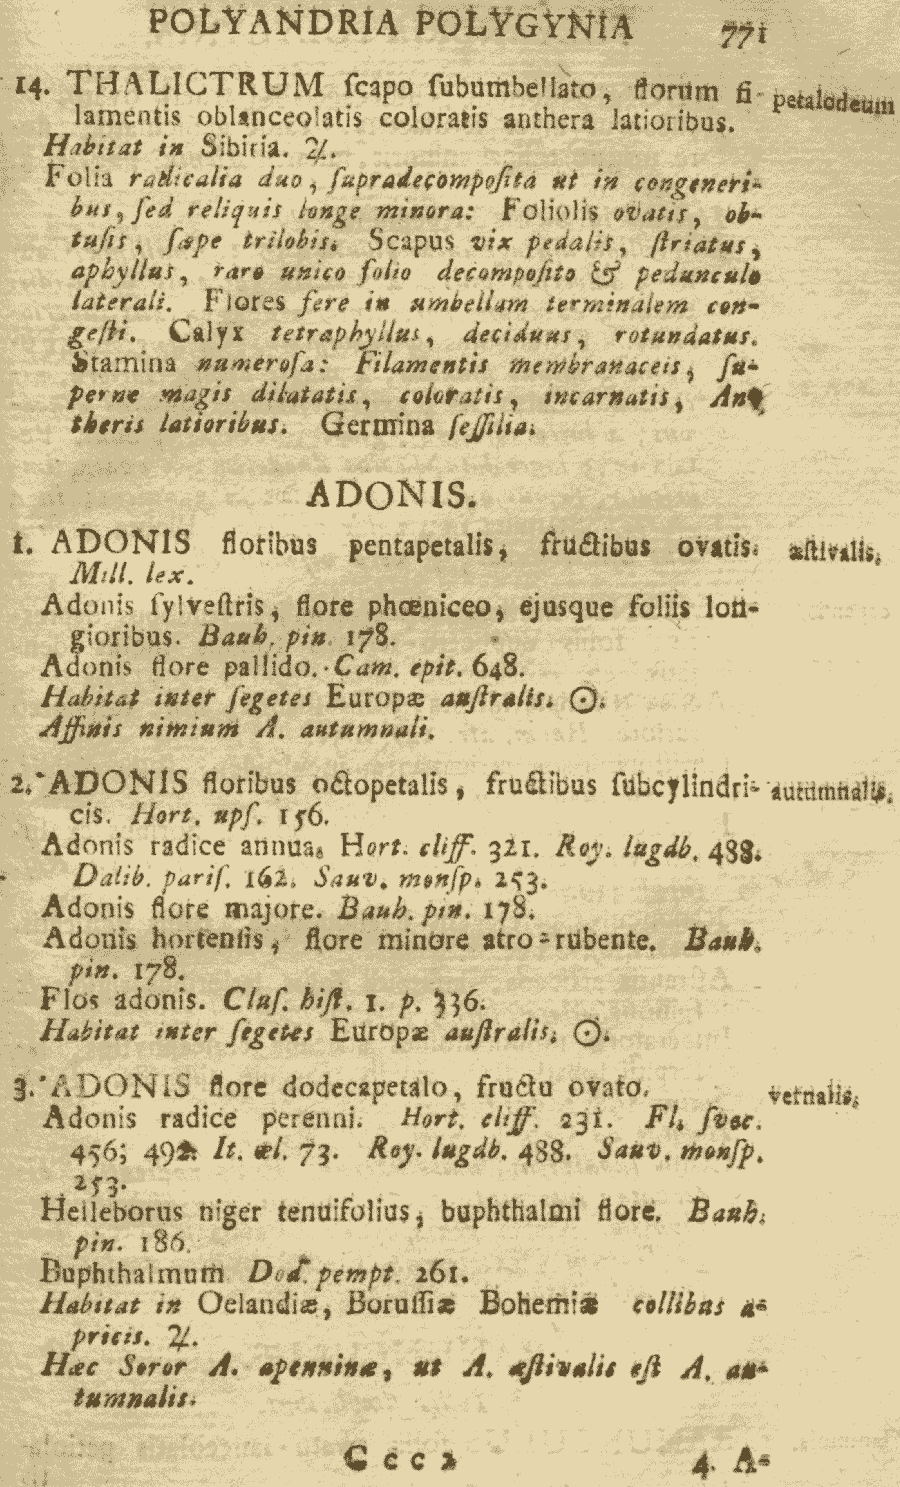 POLYANDRIA POLYGYNIA 771
14. THALICTRUM ſcapo ſubumbellato, florum fi- petalodeum
lamentis oblanceolatis coloratis anthera latioribus.
Habitat in Sibiria. ♃.
Folia radicalia duo, ſupradecompoſita ut in congeneri-
bus, ſed reliquis longe minora: Foliolis ovatis, ob-
tuſis, ſæpe trilobis. Scapus vix pedalis, ſtriatus,
aphyllus, raro unico folio decompoſito & pedunculo
laterali. Flores fere in umbellam terminalem con-
geſti. Calyx tetraphyllus, deciduus, rotundatus.
Stamina numeroſa: Filamentis membranaceis, ſu-
perne magis dilatatis, coloratis, incarnatis, An-
theris latioribus. Germina ſeſſilia.
ADONIS.
1. ADONIS floribus pentapetalis, fructibus ovatis. æſtivalis.
Mill. lex.
Adonis ſylveſtris, flore phœniceo, ejusque foliis lon-
gioribus. Bauh. pin. 178.
Adonis flore pallido. Cam. epit. 648.
Habitat inter ſegetes Europæ auſtralis. ☉.
Affinis nimium A. autumnali.
2. ADONIS floribus octopetalis, fructibus ſubcylindri- autumnalis.
cis. Hort. upſ. 156.
Adonis radice annua. Hort. cliff. 321. Roy. lugdb. 488.
Dalib. pariſ. 162. Sauv. monſp. 253.
Adonis flore majore. Bauh. pin. 178.
Adonis hortenſis, flore minore atro-rubente. Bauh.
pin. 178.
Flos adonis. Cluſ. hiſt. 1. p. 336.
Habitat inter ſegetes Europæ auſtralis. ☉.
3. ADONIS flore dodecapetalo, fructu ovato. vernalis.
Adonis radice perenni. Hort. cliff. 231. Fl. ſvec.
456; 492. It. œl. 73. Roy. lugdb. 488. Sauv. monſp.
253.
Helleborus niger tenuifolius, buphthalmi flore. Bauh.
pin. 186.
Buphthalmum Dod. pempt. 261.
Habitat in Oelandiæ, Boruſſiæ Bohemiæ collibus a-
pricis. ♃.
Hæc Soror A. apenninæ, ut A. æſtivalis eſt A. au-
tumnalis.
C c c 2 4. A-